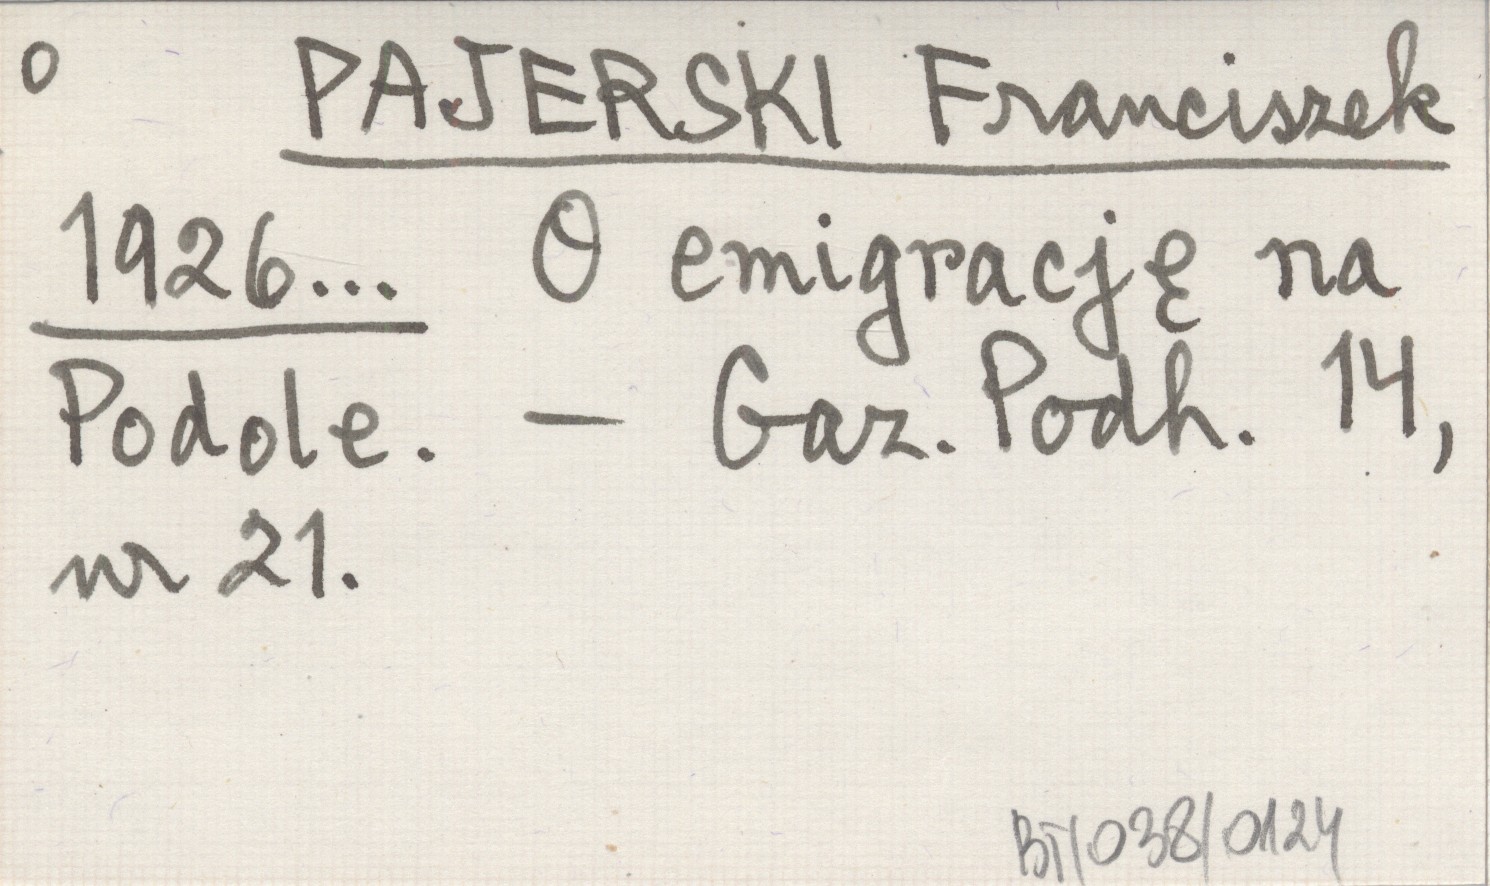 o PAJERSKI Franciszek
1926... O emigrację na
Podole. — Gaz. Podh. 14,
nr 21.
BT/038/0124